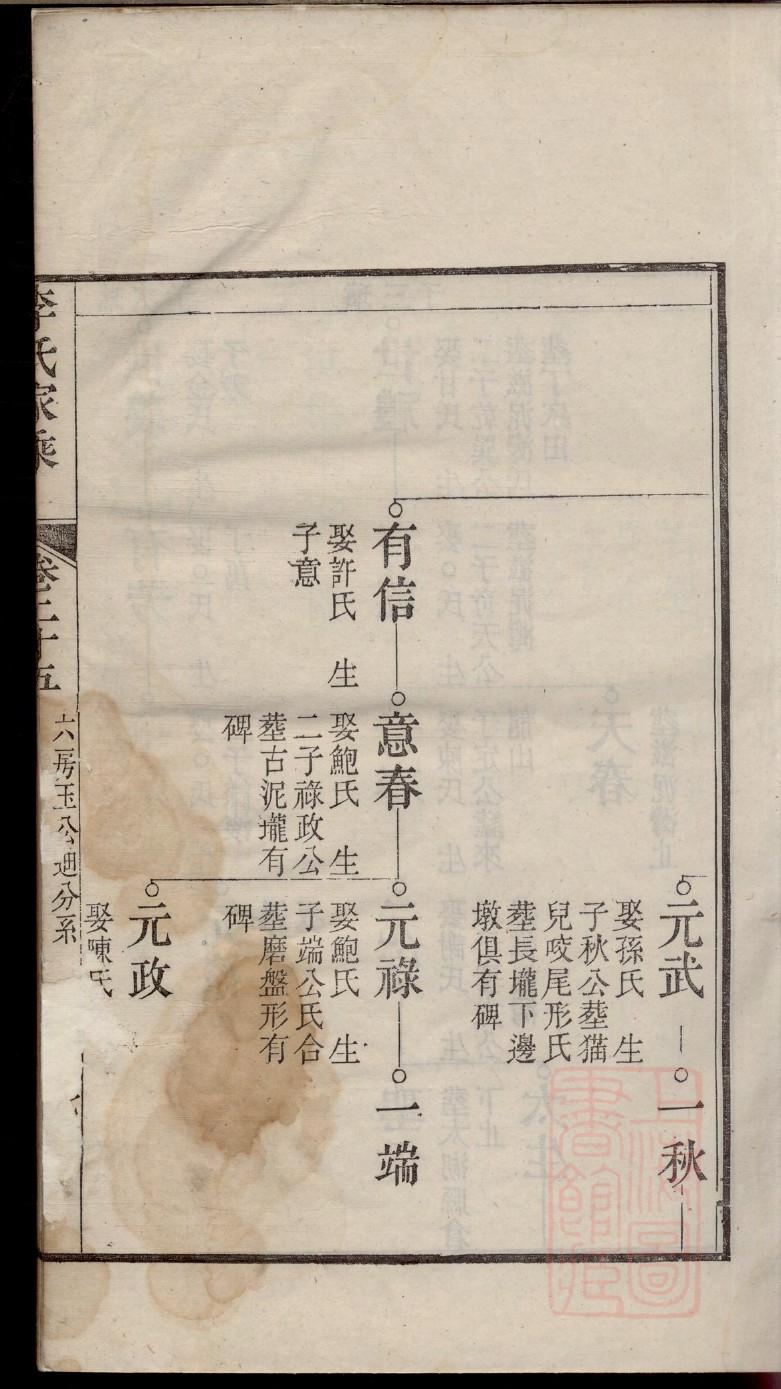 元武
娶孫氏　生
子秋公塟猫
兒咬尾形氏
塟長壠下邊
墩俱有碑
一秋
有信
娶許氏　生
子意
意春
娶鮑氏　生
二子祿政公
塟古泥壠有
碑
元祿
娶鮑氏　生
子端公氏合
塟磨盤形有
碑
一端
元政
娶陳氏
李氏家乘
卷二十五
六房玉公迪分系
上海圖書館藏